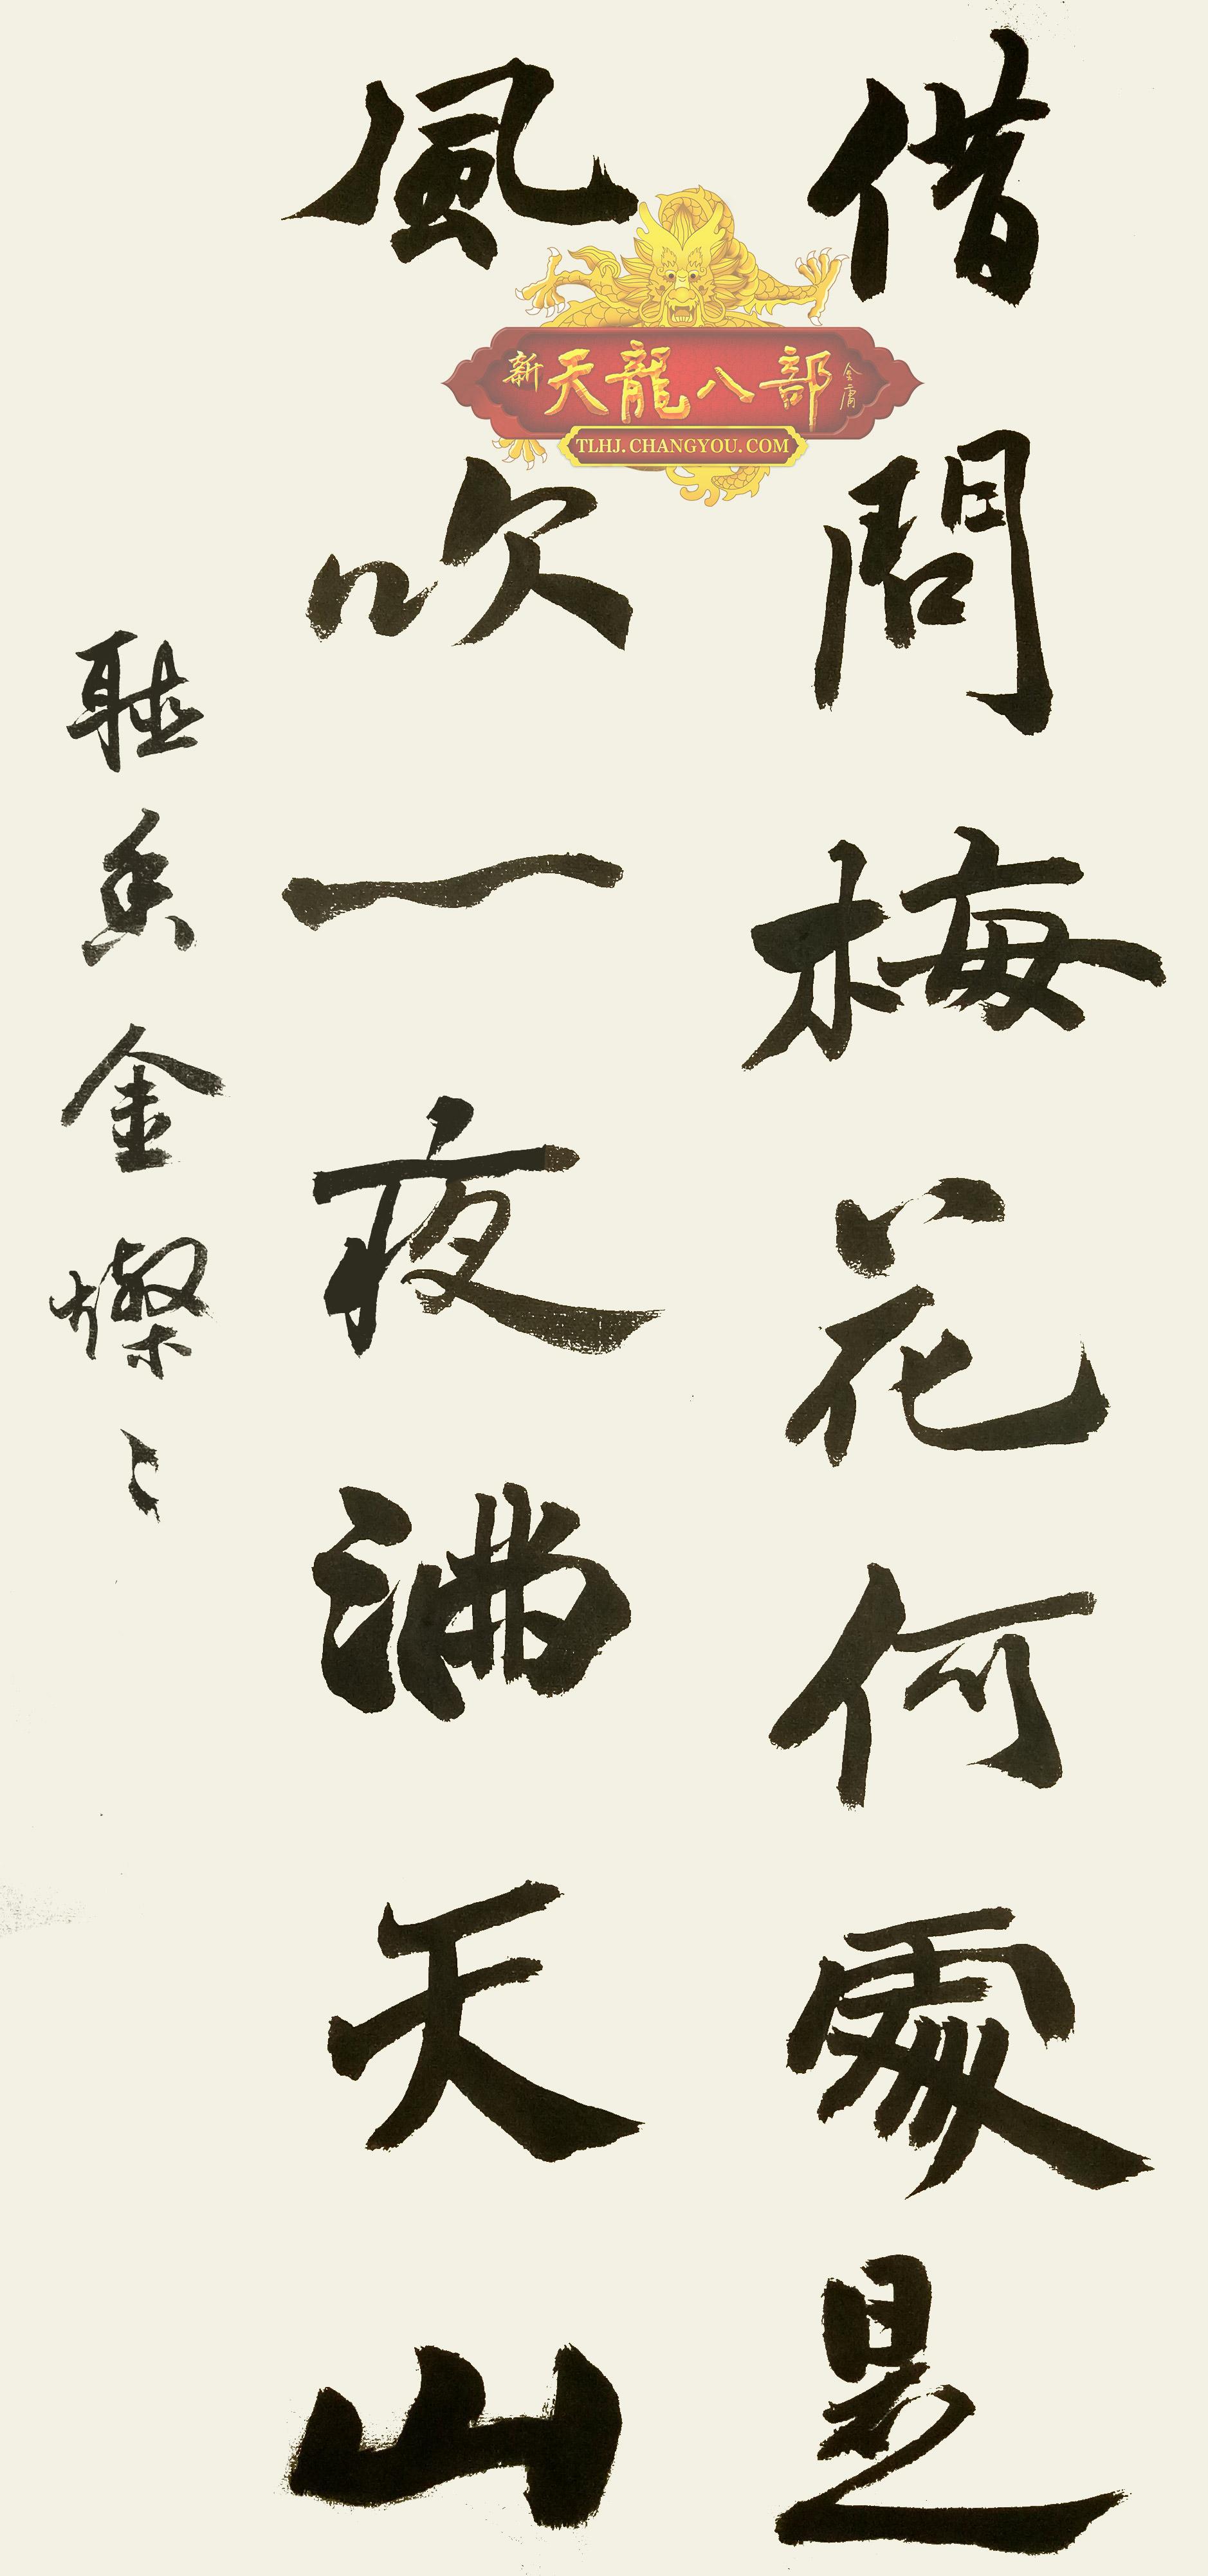 借問梅花何處是
風吹一夜滿天山
聽香金燦〻
新天龍八部金庸
TLHJ.CHANGYOU.COM